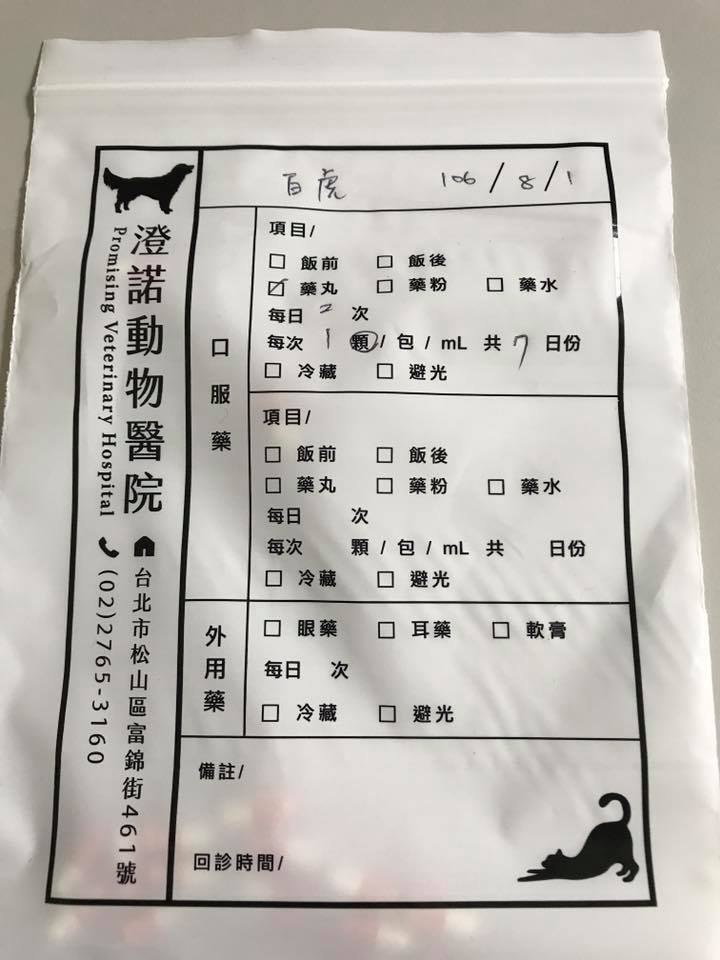 澄諾動物醫院
Promising Veterinary Hospital
台北市松山區富錦街461號
(02)2765-3160
百虎 106/8/1
口服藥
項目/
□ 飯前 □ 飯後
☑ 藥丸 □ 藥粉 □ 藥水
每日 2 次
每次 1 顆 / 包 / mL 共 7 日份
□ 冷藏 □ 避光
項目/
□ 飯前 □ 飯後
□ 藥丸 □ 藥粉 □ 藥水
每日 次
每次 顆 / 包 / mL 共 日份
□ 冷藏 □ 避光
外用藥
□ 眼藥 □ 耳藥 □ 軟膏
每日 次
□ 冷藏 □ 避光
備註/
回診時間/